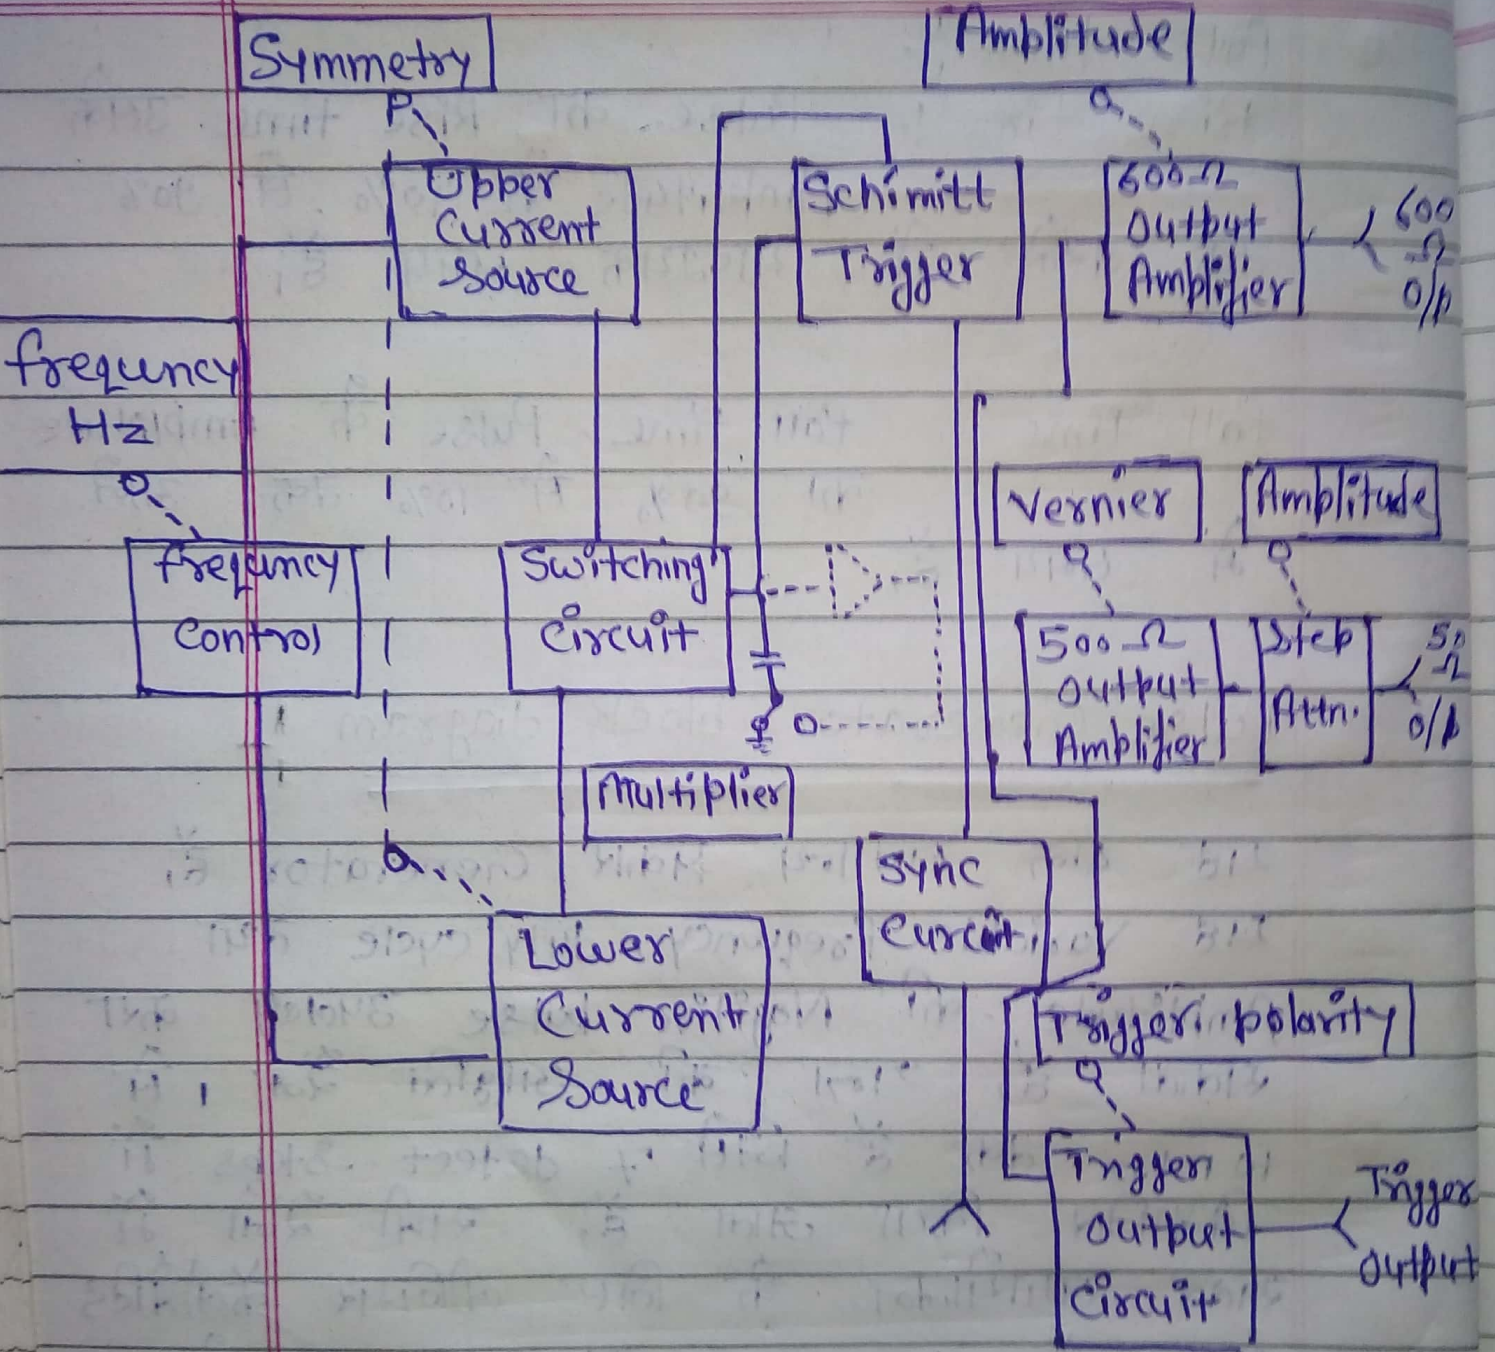 Symmetry
Amplitude
Upper
Current
Source
Schimitt
Trigger
600Ω
Output
Amplifier
600
Ω
O/p
frequncy
Hz
Vernier
Amplitude
frequncy
Control
Switching
Circuit
500Ω
Output
Amplifier
Step
Attn.
50
Ω
O/p
Multiplier
Sync
Lower
Current
Source
Trigger polarity
Trigger
Output
Circuit
Trigger
Output